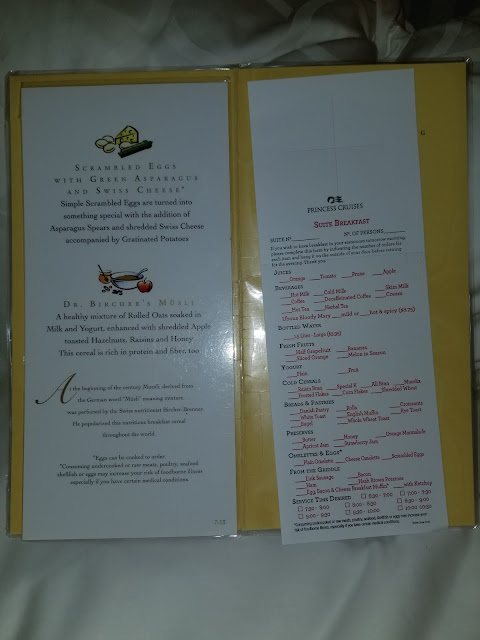 SCRAMBLED EGGS
WITH GREEN ASPARAGUS
AND SWISS CHEESE*
Simple Scrambled Eggs are turned into
something special with the addition of
Asparagus Spears and shredded Swiss Cheese
accompanied by Gratinated Potatoes
DR. BIRCHER'S MÜSLI
A healthy mixture of Rolled Oats soaked in
Milk and Yogurt, enhanced with shredded Apple
toasted Hazelnuts, Raisins and Honey
This cereal is rich in protein and fiber, too
At the beginning of the century Muesli, derived from
the German word "Müsli" meaning mixture,
was perfected by the Swiss nutritionist Bircher-Benner.
He popularized this nutritious breakfast cereal
throughout the world.
*Eggs can be cooked to order.
*Consuming undercooked or raw meats, poultry, seafood,
shellfish or eggs may increase your risk of foodborne illness
especially if you have certain medical conditions.
PRINCESS CRUISES
SUITE BREAKFAST
SUITE Nº Nº. OF PERSONS
If you wish to have breakfast in your stateroom tomorrow morning,
please complete this form by indicating the number of orders for
each item and hang it on the outside of your door before retiring
for the evening. Thank you.
JUICES
Orange Tomato Prune Apple
BEVERAGES
Hot Milk Cold Milk Skim Milk
Coffee Decaffeinated Coffee Cream
Hot Tea Herbal Tea
Bloody Mary mild or hot & spicy
BOTTLED WATER
FRESH FRUITS
Half Grapefruit Bananas
Sliced Orange Melon in Season
YOGURT
Plain Fruit
COLD CEREALS
Raisin Bran Special K All Bran Muesli
Frosted Flakes Corn Flakes Shredded Wheat
BREADS & PASTRIES
Danish Pastry Rolls Croissants
White Toast English Muffin Rye Toast
Bagel Whole Wheat Toast
PRESERVES
Butter Honey Orange Marmalade
Apricot Jam Strawberry Jam
OMELETTES & EGGS*
Plain Omelette Cheese Omelette Scrambled Eggs
FROM THE GRIDDLE
Link Sausage Bacon
Ham Hash Brown Potatoes
Egg, Bacon & Cheese Breakfast Muffin* with Ketchup
SERVICE TIME DESIRED 6:30 - 7:00 7:00 - 7:30
7:30 - 8:00 8:00 - 8:30 8:30 - 9:00
9:00 - 9:30 9:30 - 10:00 10:00 - 10:30